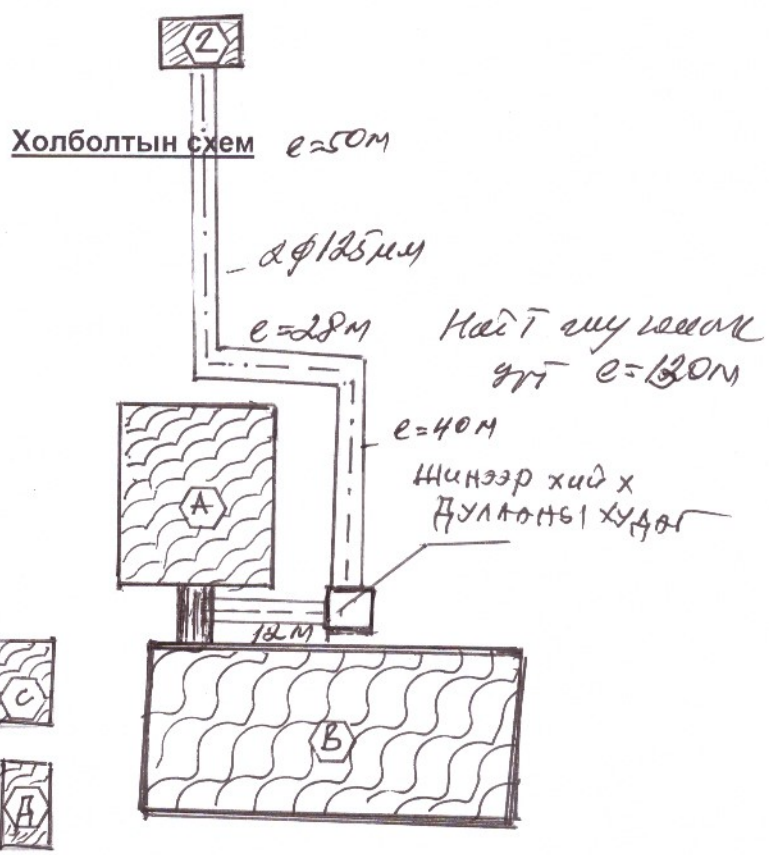 2
Холболтын схем e=50м
2ф125мм
e=28м
Нийт шугамын
урт e=120м
e=40м
Шинээр хийх
Дулааны худаг
А
12м
С
В
Д